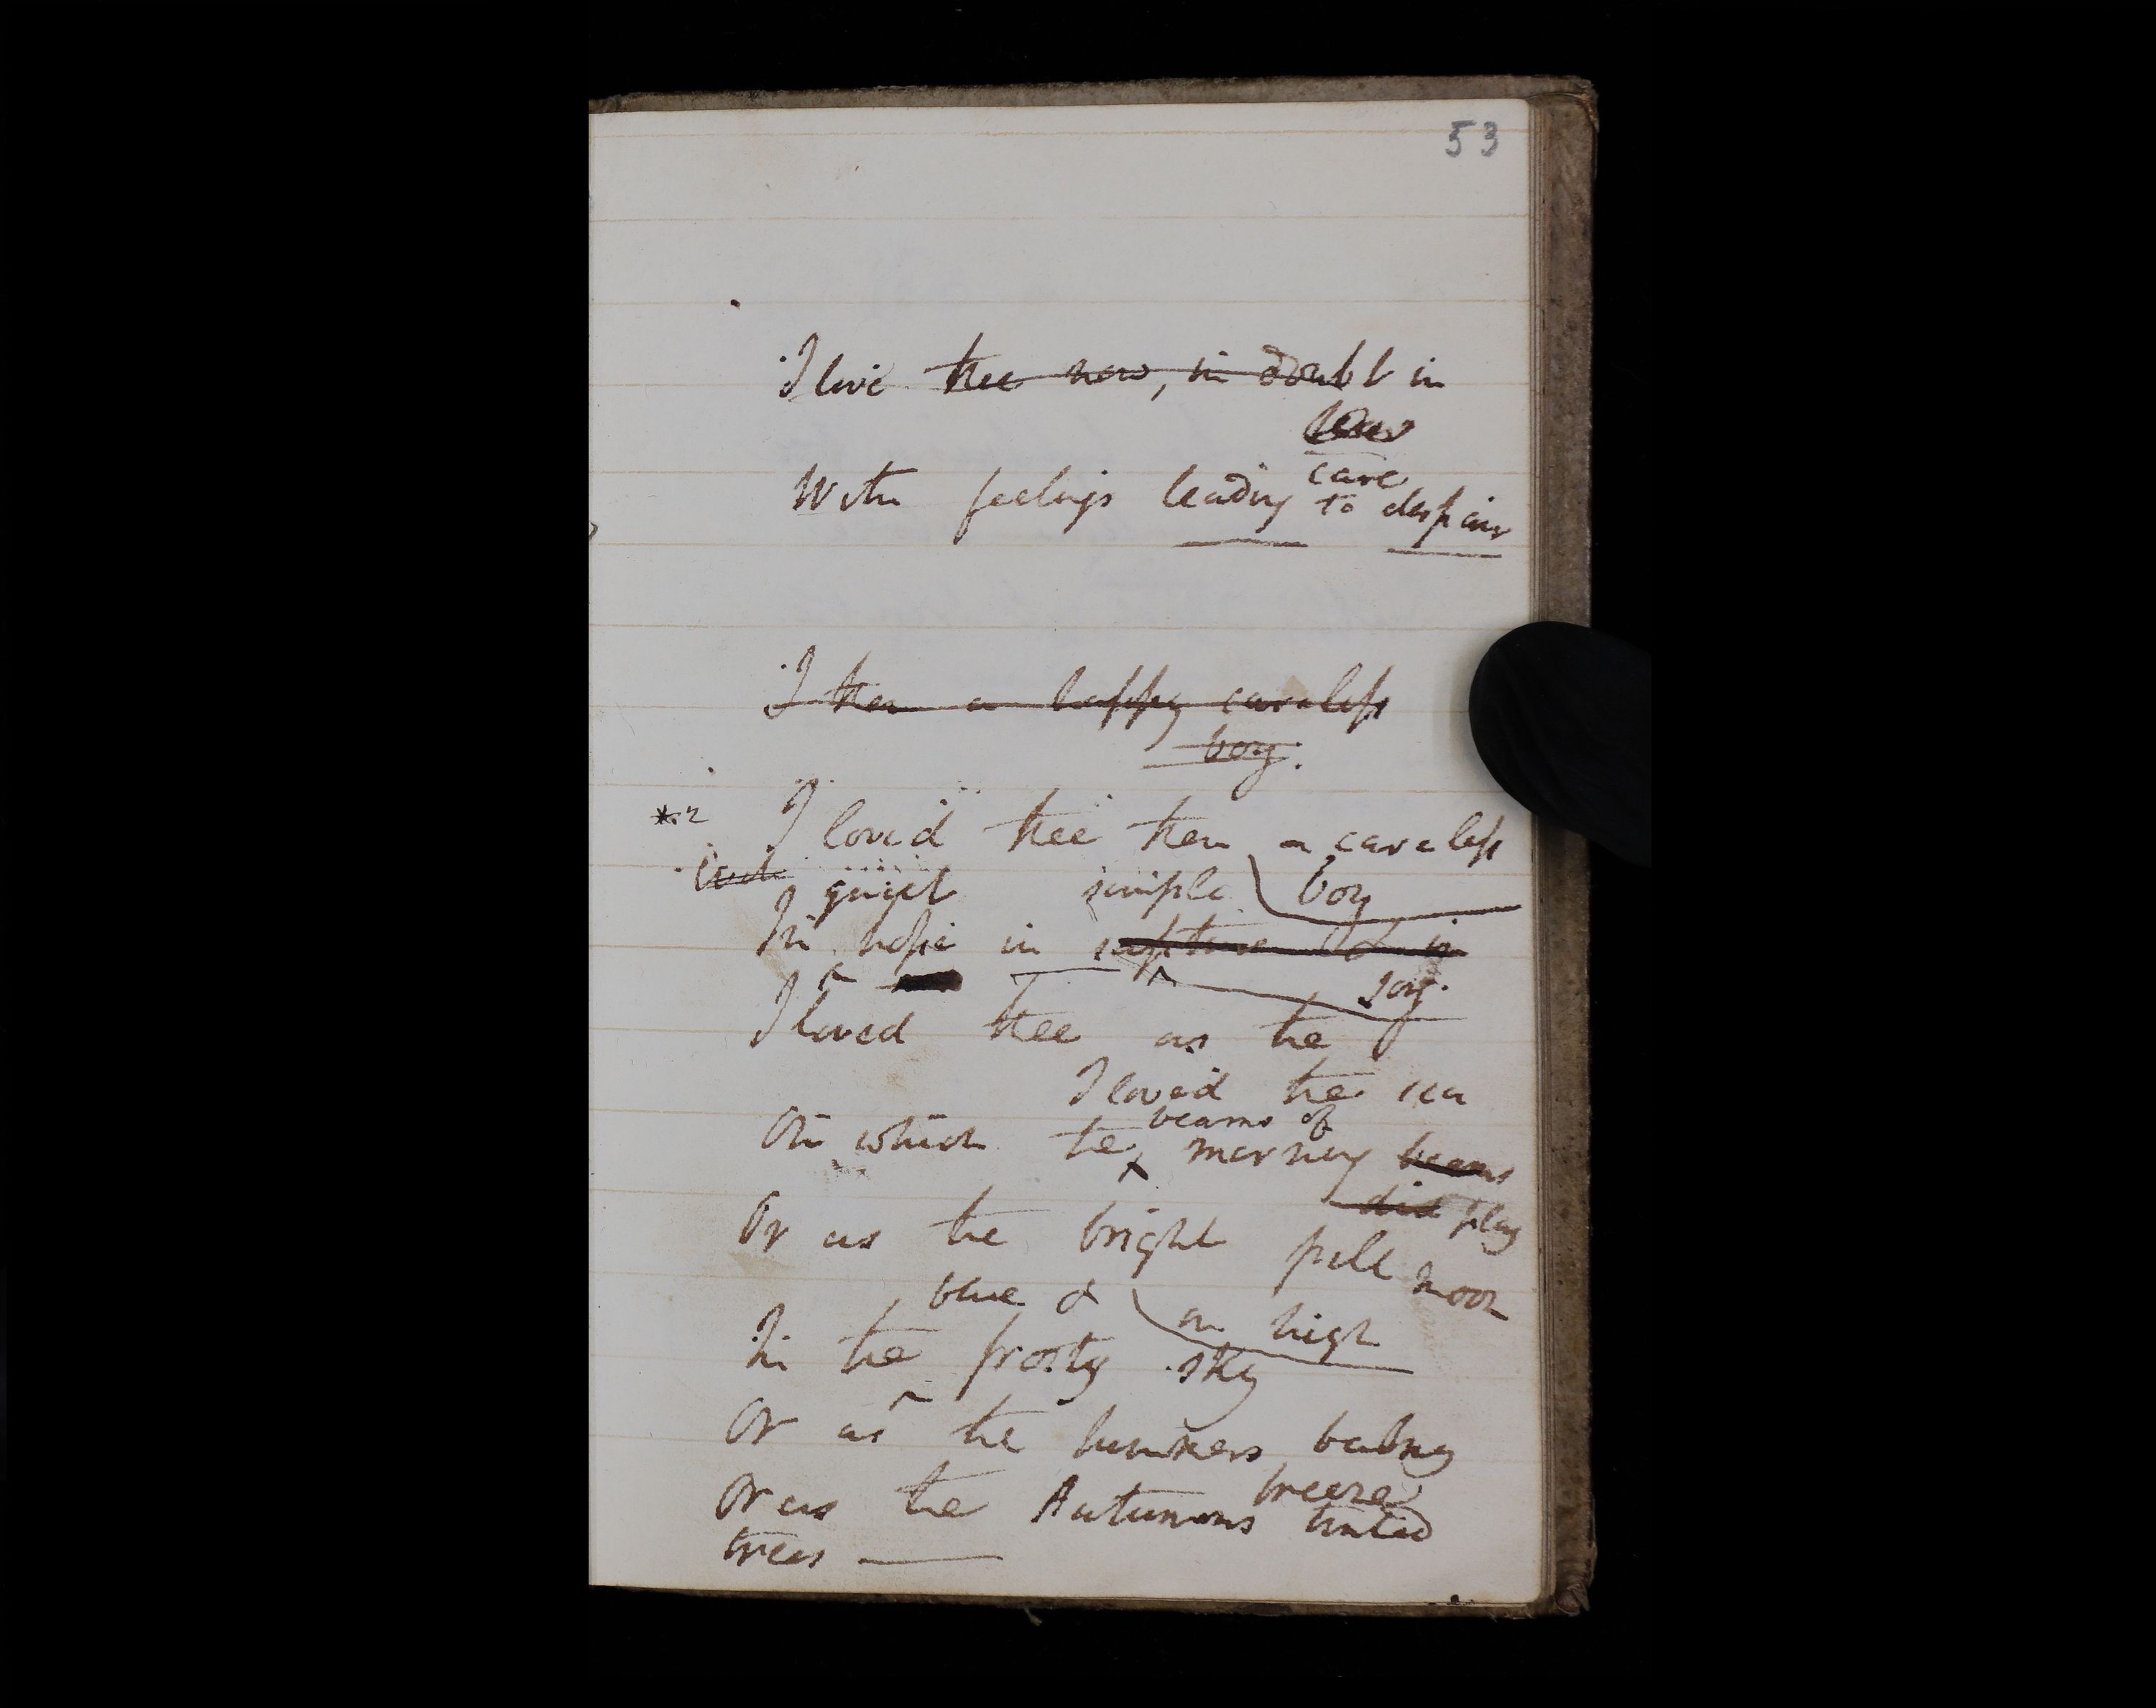 53
I love thee now, in doubt in
care
With feelings leading to despair
I then a happy careless
boy.
*.2 I loved thee then a careless
quiet simple boy
In hope in rapture & in
joy.
I loved thee as the
I loved the sea
On which the beams of morning beams
did play
Or as the bright full moon
blue & on high
In the frosty sky
Or as the summers balmy
breeze
Or as the Autumns tinted
trees